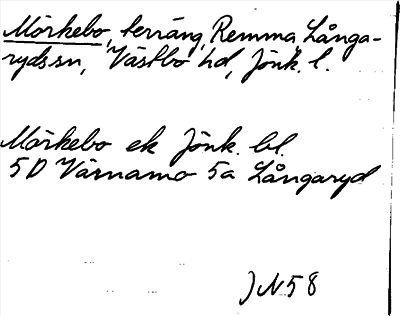 Mörkebo, terräng, Remma, Långa-
ryds sn, Västbo hd, Jönk. l.
Mörkebo ek Jönk. bl.
5D Värnamo 5a Långaryd
JN58